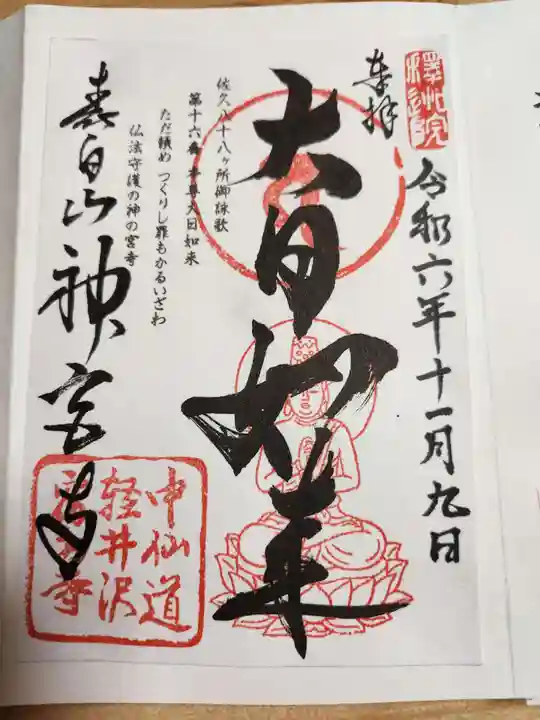 奉拝
令和六年十一月九日
大日如来
佐久八十八ヶ所御詠歌
第十六番 本尊大日如来
ただ頼め つくりし罪もかるいざわ
仏法守護の神の宮寺
神宮寺
中仙道
軽井沢